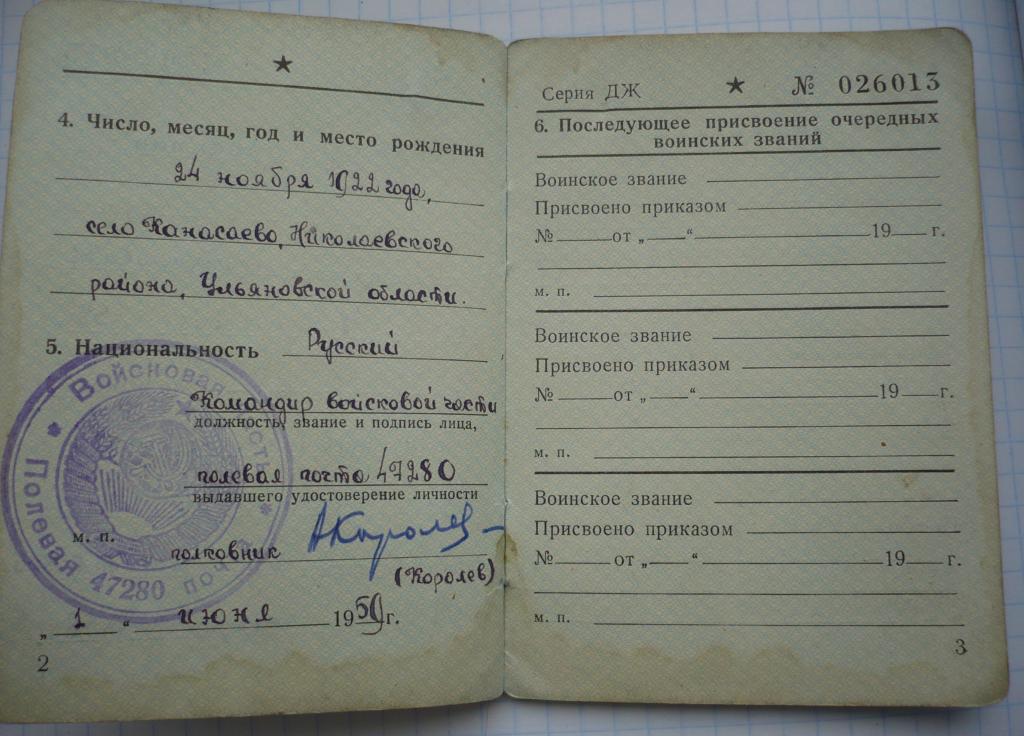 ★
4. Число, месяц, год и место рождения
24 ноября 1922 года,
село Канасаево, Николаевского
района, Ульяновской области.
5. Национальность Русский
Командир войсковой части
должность, звание и подпись лица,
полевая почта 47280
выдавшего удостоверение личности
м. п.
полковник АКоролев
(Королев)
„ 1 “ июня 1959 г.
Войсковая часть
Полевая почта 47280
2
Серия ДЖ ★ № 026013
6. Последующее присвоение очередных
воинских званий
Воинское звание
Присвоено приказом
№ от „ “ 19 г.
м. п.
Воинское звание
Присвоено приказом
№ от „ “ 19 г.
м. п.
Воинское звание
Присвоено приказом
№ от „ “ 19 г.
м. п.
3